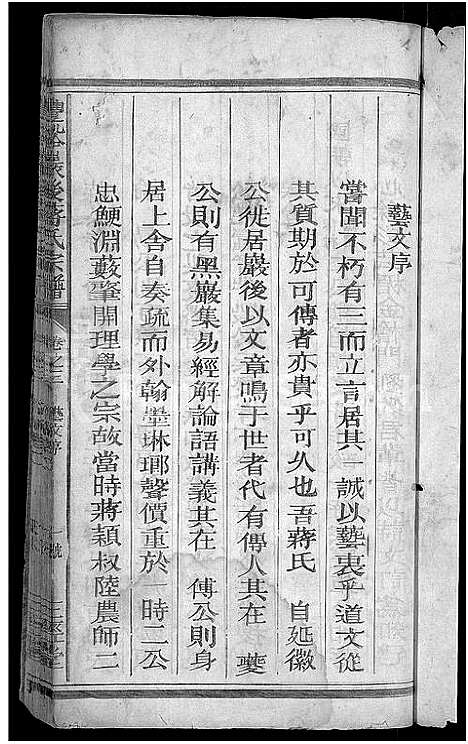 藝文序
嘗聞不朽有三而立言居其一誠以藝衷乎道文從
其質期於可傳者亦貴乎可久也吾蔣氏　自延徽
公徙居巖後以文章鳴于世者代有傳人其在　夔
公則有黑巖集易經解論語講義其在　傅公則身
居上舍自奏疏而外翰墨琳瑯聲價重於一時二公
忠鯁淵藪肇開理學之宗故當時蔣穎叔陸農師二
巖後蔣氏宗譜
卷之二　藝文序